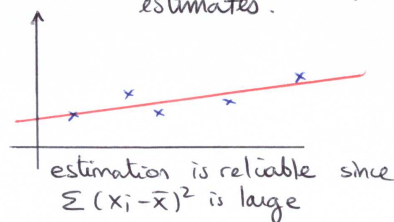 estimates.
estimation is reliable since
Σ (xᵢ-x̄)² is large